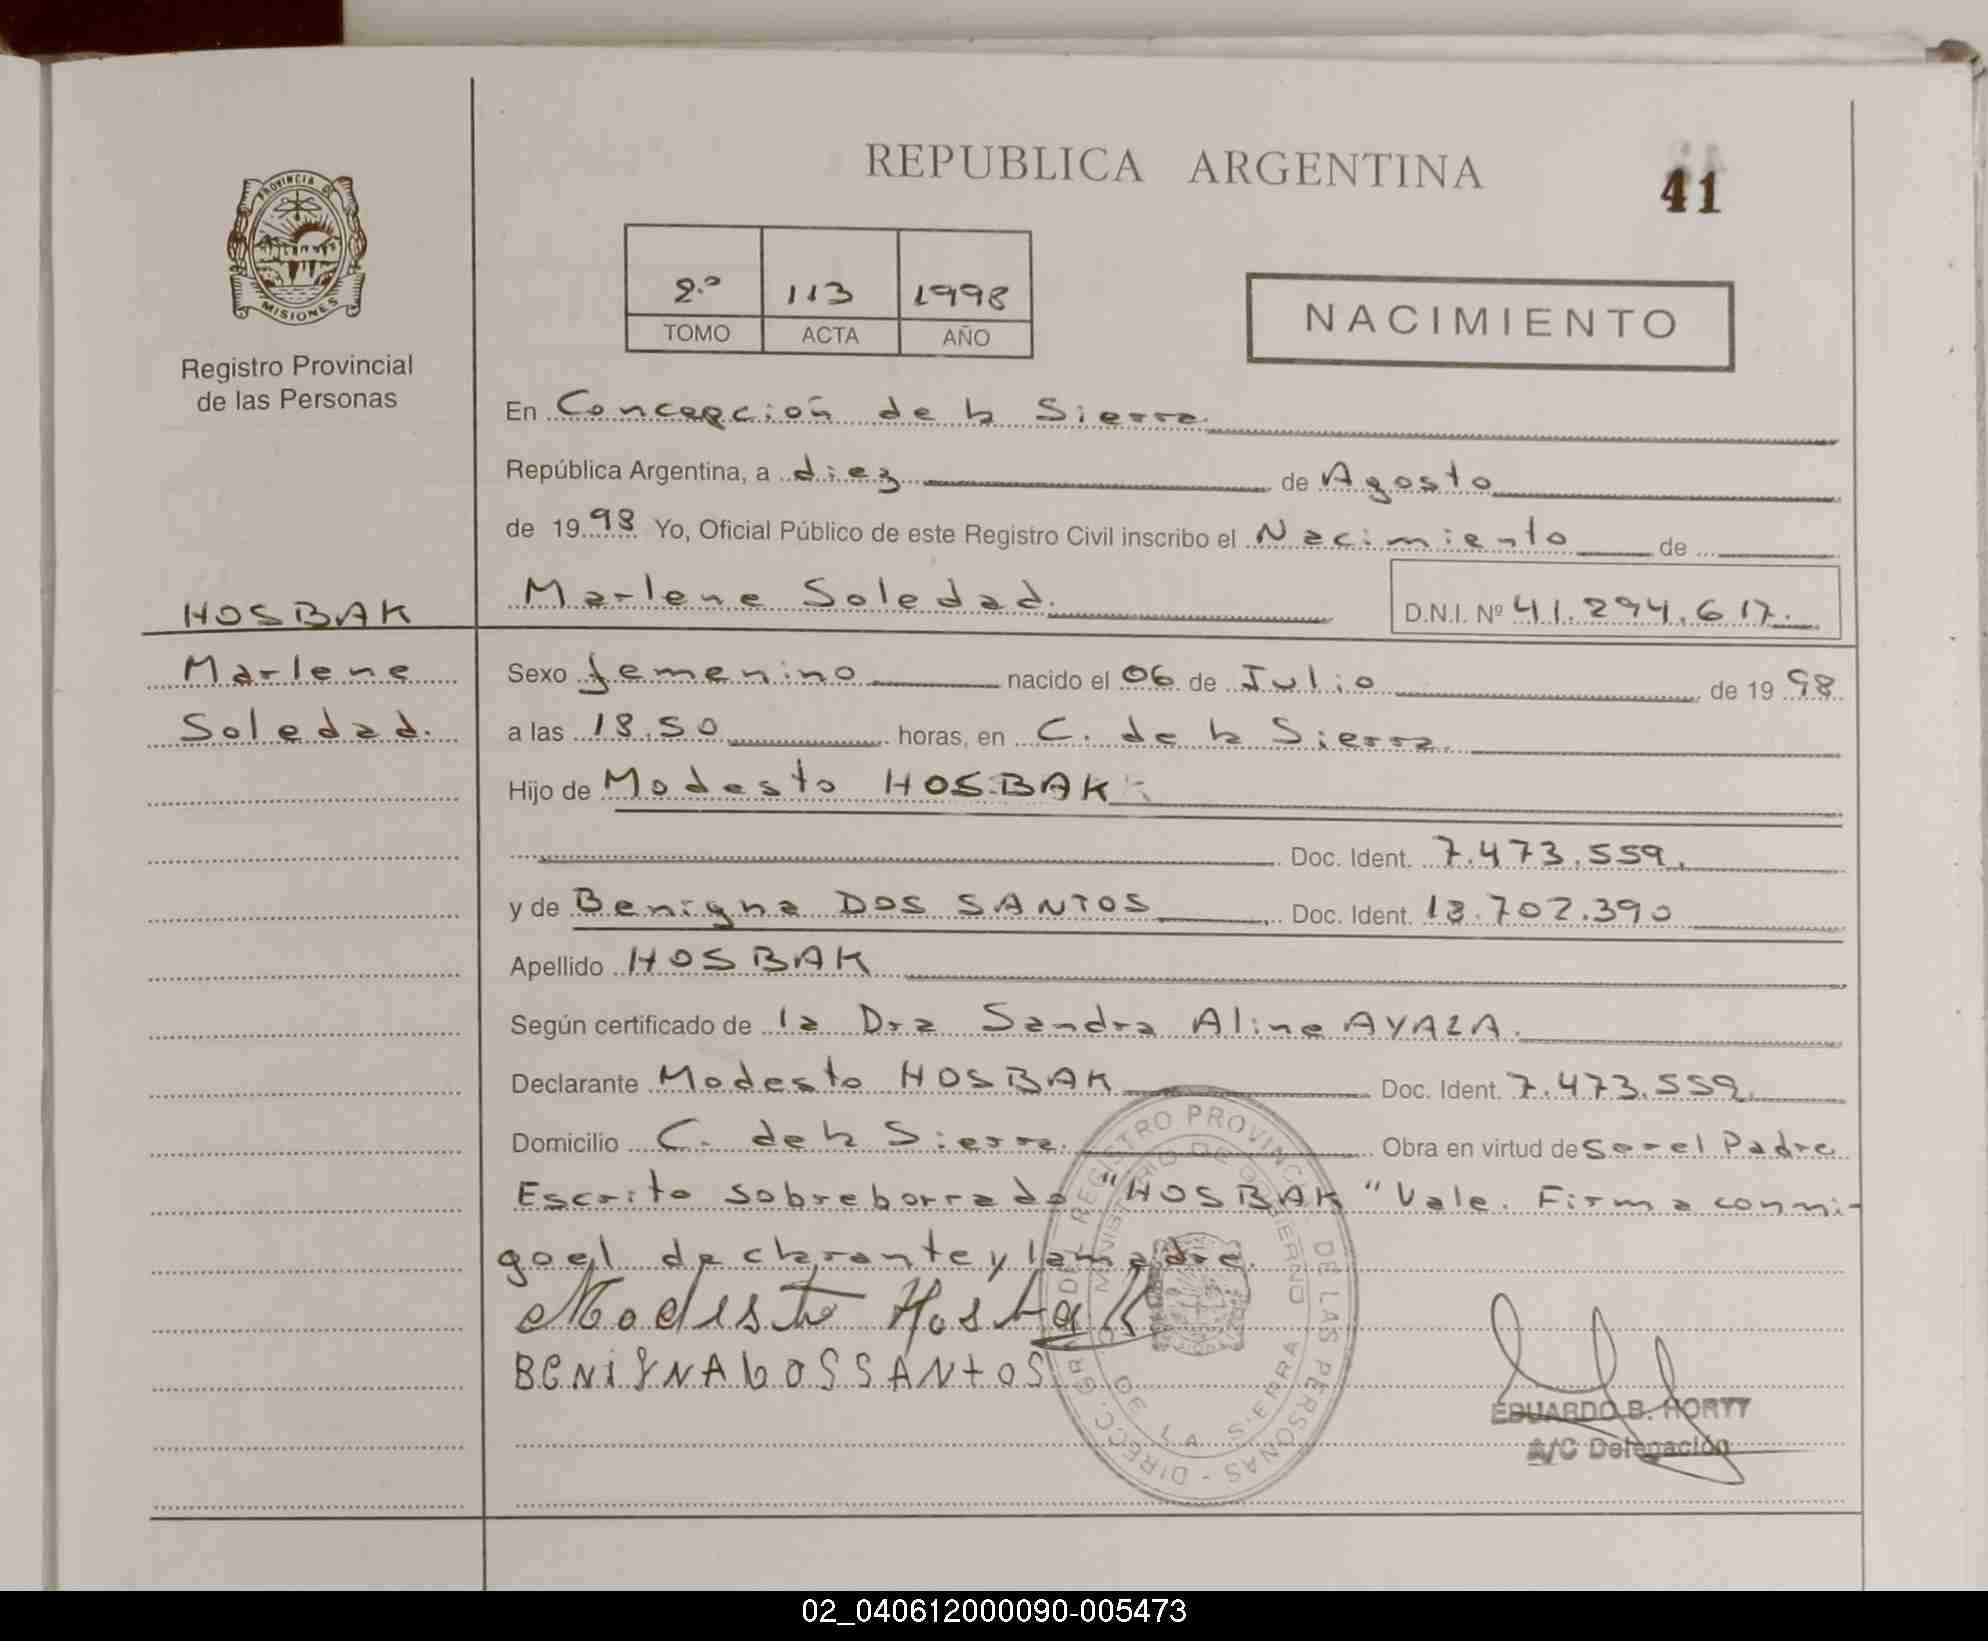 REPUBLICA ARGENTINA
41
PROVINCIA DE
MISIONES
Registro Provincial
de las Personas
2.º 113 1998
TOMO ACTA AÑO
NACIMIENTO
En Concepción de la Sierra
República Argentina, a diez de Agosto
de 1998 Yo, Oficial Público de este Registro Civil inscribo el Nacimiento de
Marlene Soledad. D.N.I. Nº 41.294.617.
HOSBAK
Marlene
Soledad.
Sexo femenino nacido el 06 de Julio de 1998
a las 18.50 horas, en C. de la Sierra.
Hijo de Modesto HOSBAK
Doc. Ident. 7.473.559.
y de Benigna DOS SANTOS Doc. Ident. 18.702.390
Apellido HOSBAK
Según certificado de la Dra Sandra Aline AYALA.
Declarante Modesto HOSBAK Doc. Ident. 7.473.559.
Domicilio C. de la Sierra. Obra en virtud de ser el Padre
Escrito sobreborrado "HOSBAK" Vale. Firma conmi-
go el declarante y la madre.
Modesto Hosbak
BENIGNA DOSSANTOS
DIRECC. GRAL. DEL REGISTRO PROVINCIAL DE LAS PERSONAS
MINISTERIO DE GOBIERNO
DE LA SIERRA
EDUARDO B. HORYY
A/C Delegación
02_040612000090-005473